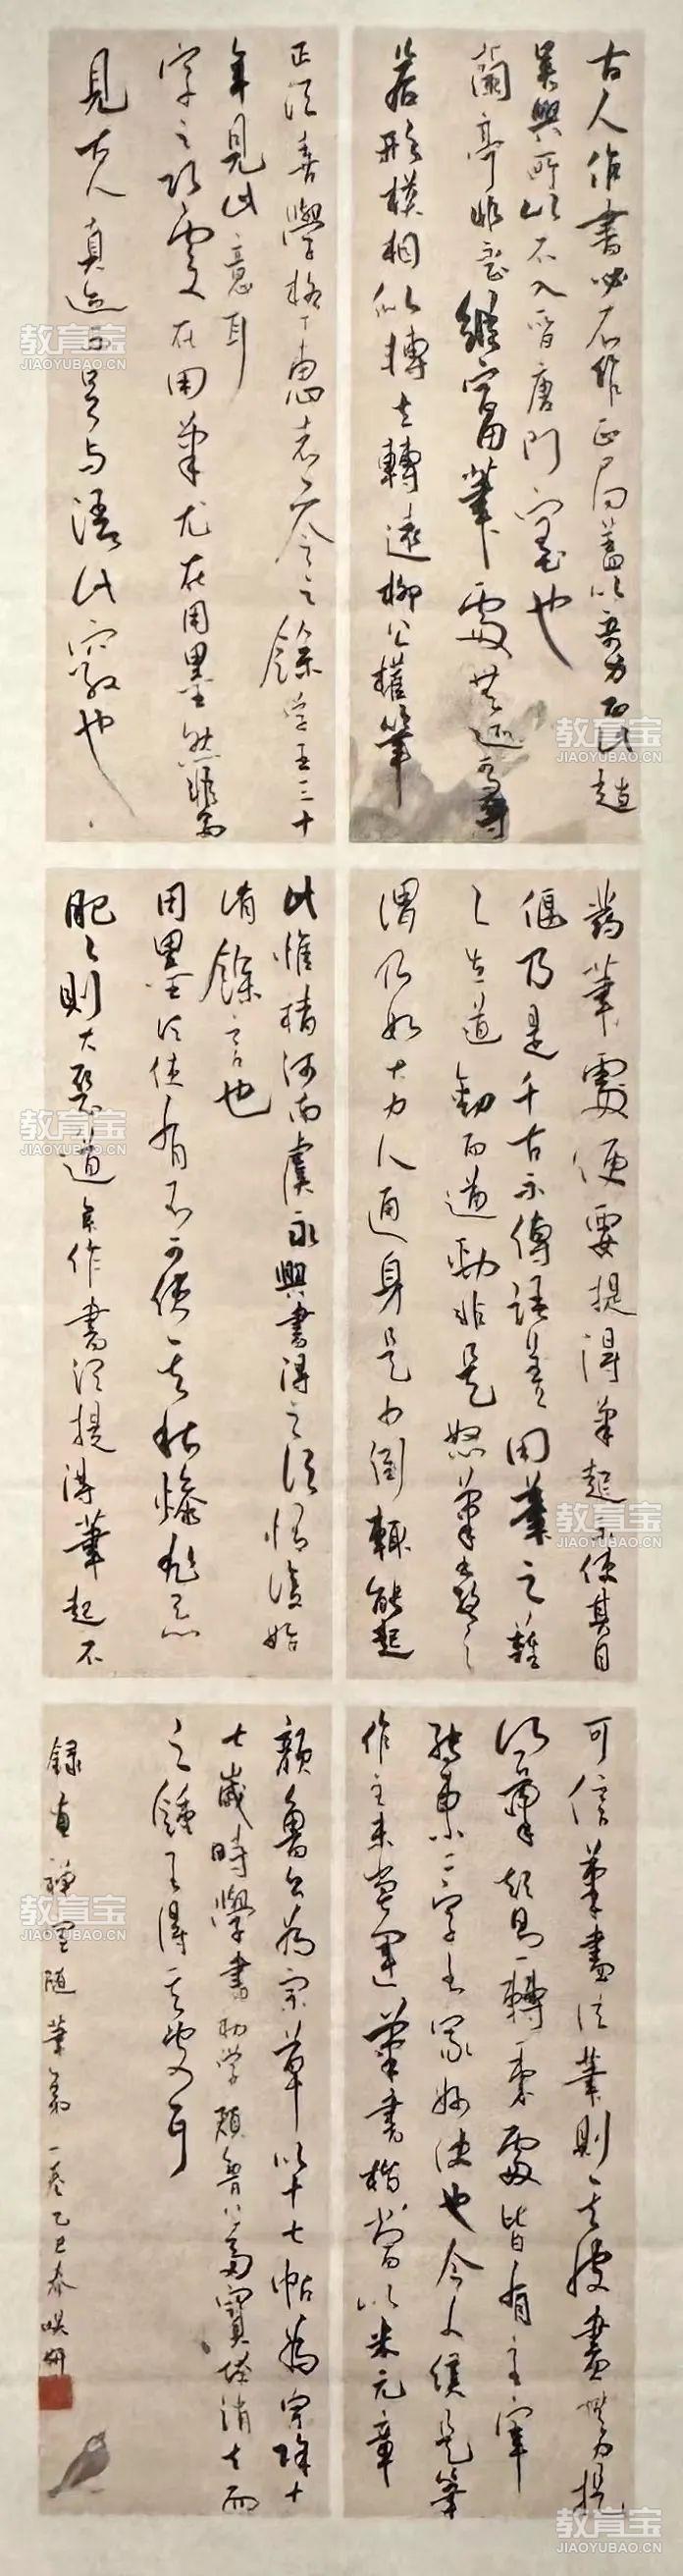 古人作書必不作正局蓋以奇為正此趙
吳興所以不入晉唐門室也
蘭亭非不正其縱宕用筆處無迹可尋
若形模相似轉去轉遠柳公權筆
正須善學柳下惠者參之余學書三十
年見此意耳
字之巧處在用筆尤在用墨然非多
見古人真迹不足與語此竅也
發筆處便要提得筆起不使其自
偃乃是千古不傳語蓋用筆之難
難在遒勁而遒勁非是怒筆木強之
謂乃如大力人通身是力倒輒能起
此惟褚河南虞永興書得之須悟後始
肯余言也
用墨須使有潤不可使其枯燥尤忌
肥肥則大惡道矣作書須提得筆起不
可信筆蓋信筆則其波畫無力提
得筆起則一轉一束處皆有主宰
轉束二字書家妙訣也今人只是筆
作主未嘗運筆書楷當以米元章
顏魯公為宗草以十七帖為宗余十
七歲時學書初學顏魯公多寶塔
錄畫禪室隨筆第一卷乙巳春
教育宝
JIAOYUBAO.CN
教育宝
JIAOYUBAO.CN
教育宝
JIAOYUBAO.CN
教育宝
JIAOYUBAO.CN
教育宝
JIAOYUBAO.CN
教育宝
JIAOYUBAO.CN